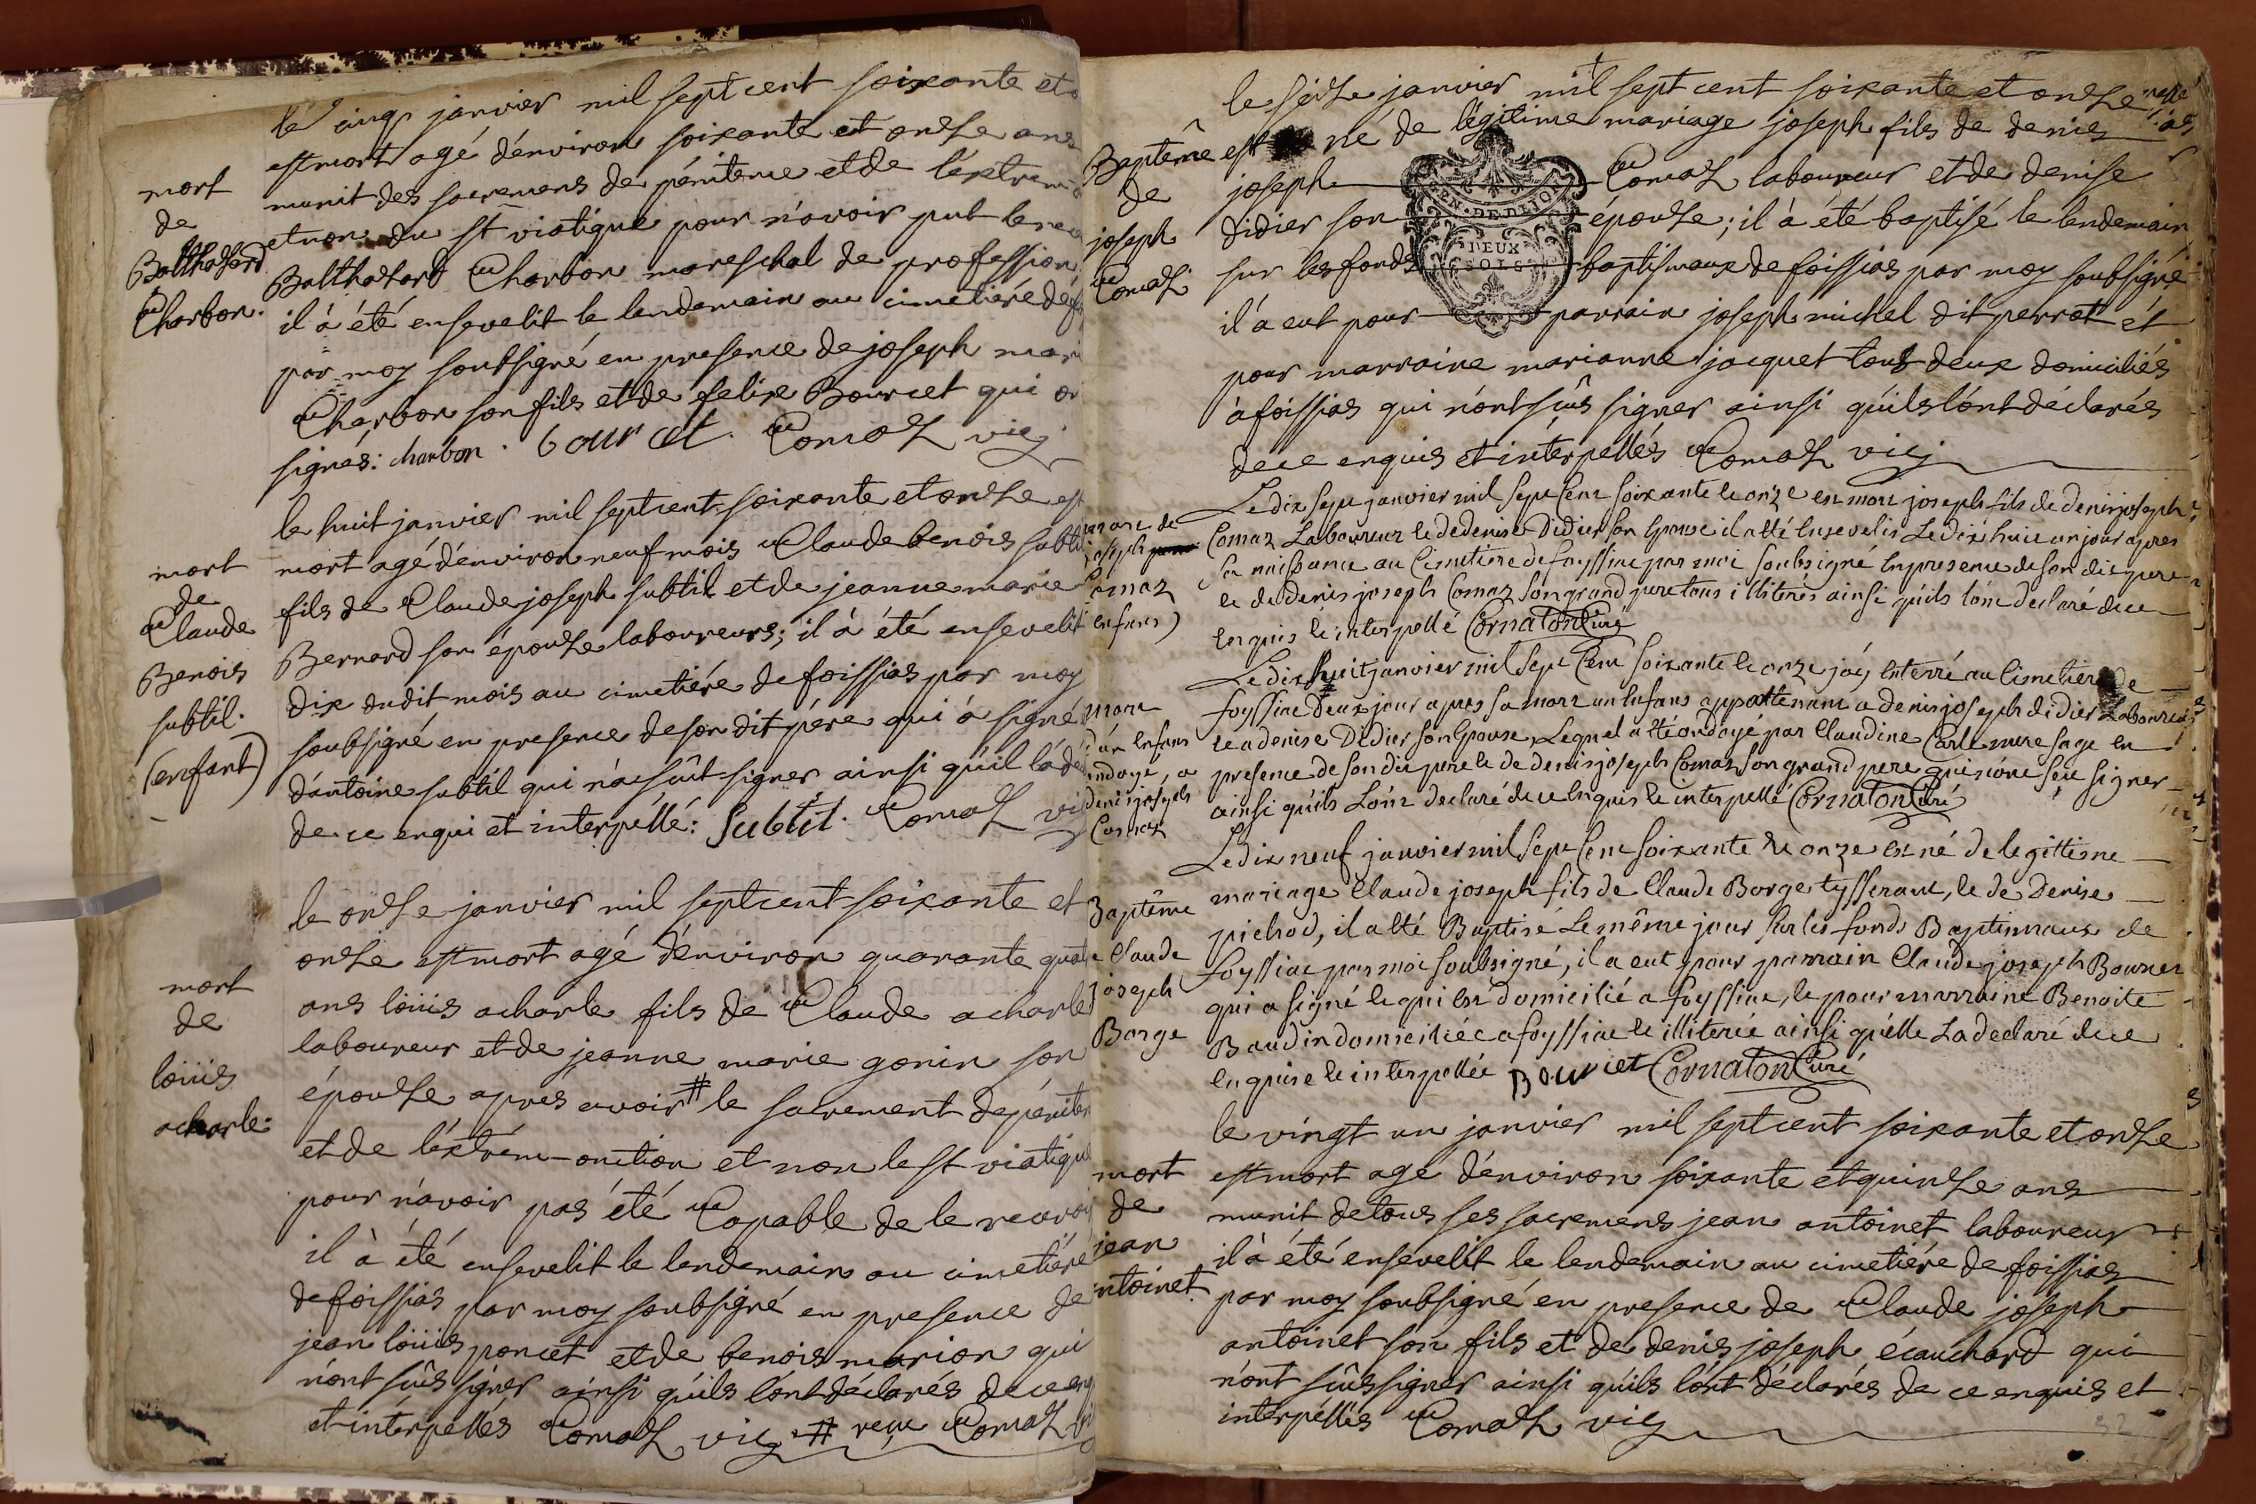 le cinq janvier mil sept cent soixante et
est mort agé d'environ soixante et onze ans
munit des sacremens de pénitence et de l'extrem
et non du st viatique pour n'avoir put le rece
mort
de
Balthasard
Charbon.
Balthasard Charbon mareschal de profession
il à été ensevelit le lendemain au cimetière de f
par moy soubsigné en presence de joseph mari
Charbon son fils et de felix Bourcet qui o
signés: charbon. bourcet. Comaz vic
le huit janvier mil sept cent soixante et onze est
mort agé d'environ neuf mois Claude benois subtil
mort
de
Claude
Benois
subtil.
(enfant)
fils de Claude joseph subtil et de jeanne marie
Bernard son épouze laboureurs; il à été ensevelit
dix dudit mois au cimetière de foissias par moy
soubsigné en presence de son dit père qui à signé
d'antoine subtil qui n'a sçût signer ainsi qu'il l'a de
de ce enqui et interpéllé: Subtil. Comaz vic
le onze janvier mil sept cent soixante et
onze est mort agé d'environ quarante quat
mort
de
loüis
acharle:
ans loüis acharle fils de Claude acharle
laboureur et de jeanne marie gonin son
épouze apres avoir # le sacrement de péniten
et de l'extrém-onction et non le st viatique
pour n'avoir pas été Capable de le recevoi
il à été ensevelit le lendemain au cimetière
de foissias par moy soubsigné en presence de
jean loüis poncet et de benois marion qui
n'ont sçûs signer ainsi qu'ils l'ont déclarés de ce enq
et interpéllés Comaz vic # reçu Comaz vi
le seize janvier mil sept cent soixante et onze
Baptême
de
joseph
Comaz
est né de légitime mariage joseph fils de denis
joseph Comaz laboureur et de denise
didier son épouze; il à été baptisé le lendemain
sur les fonds baptismaux de foissias par moy soubsigné
il à eut pour parrain joseph michel dit perrot et
GEN. DE DIJON
DEUX
SOLS
pour marraine marianne jacquet tous deux domiciliés
à foissias qui n'ont sçûs signer ainsi qu'ils l'ont déclarés
de ce enquis et interpéllés Comaz vic
Le dix sept janvier mil sept Cent soixante et onze est mort joseph fils de denis joseph
joseph
Comaz
enfans)
Comaz Laboureur et de denise Didier son Epouse il a été Ensevelis Le dix huit un jour apres
sa naissance au Cimetiere de foyssiac par moi Soubsigné En presence de son dit pere
et de denis joseph Comaz son grand pere tous illiterés ainsi qu'ils l'ont declaré de ce
Enquis et interpellé Cornaton Curé
Le dix huit janvier mil sept Cent soixante et onze j'ay Enterré au Cimetiere de
mort
d'un Enfans
ondoyé, a
denis joseph
Comaz
foyssiac deux jour apres sa mort un Enfans appattenant a denis joseph didier Laboureur
et a denise Didier son Epouse, Lequel a été ondoyé par Claudine Carle mere sage En
presence de son dit pere et de denis joseph Comaz son grand pere qui n'ont sçu signer
ainsi qu'ils L'ont declaré de ce Enquis et interpellé Cornaton Curé
Le dix neuf janvier mil sept Cent soixante et onze est né de legittime
Baptême
Claude
joseph
Borge
mariage Claude joseph fils de Claude Borge tysserant, et de Denise
pichod, il a été Baptisé Le même jour sur les fonds Baptismaux de
foyssiac par moi soubsigné, il a eut pour parrain Claude joseph Bourcet
qui a signé le qui est domicilié a foyssiac, et pour marraine Benoite
Baudin domiciliée a foyssiac et illiterée ainsi qu'elle L'a declaré de ce
Enquise et interpellée Bourcet Cornaton Curé
le vingt un janvier mil sept cent soixante et onze
mort
de
jean
antoinet
est mort agé d'environ soixante et quinze ans
munit de tous ses sacremens jean antoinet laboureur
il à été ensevelit le lendemain au cimetière de foissias
par moy soubsigné en presence de Claude joseph
antoinet son fils et de denis joseph écauchard qui
n'ont sçûs signer ainsi qu'ils l'ont déclarés de ce enquis et
interpéllés Comaz vic